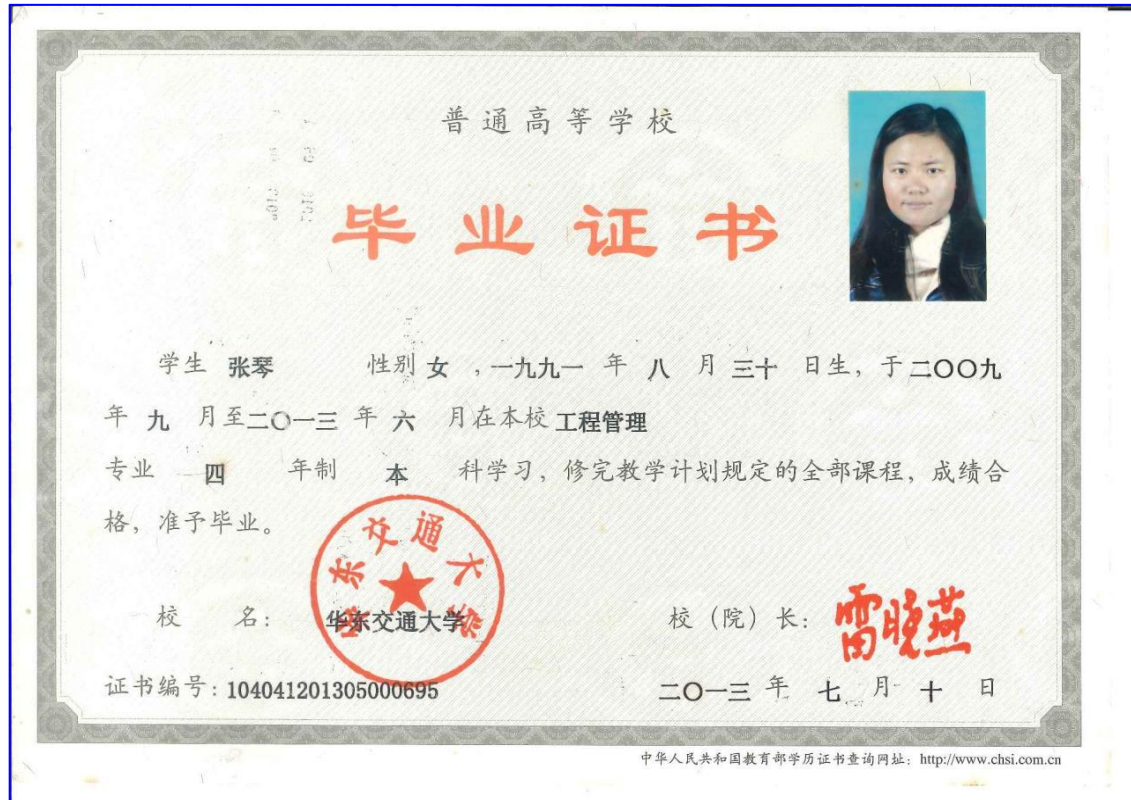 普通高等学校
毕业证书
学生 张琴 性别 女 ,一九九一 年 八 月 三十 日生, 于 二〇〇九
年 九 月至 二〇一三 年 六 月在本校 工程管理
专业 四 年制 本 科学习, 修完教学计划规定的全部课程, 成绩合
格, 准予毕业。
华东交通大学
校 名: 华东交通大学 校(院)长: 雷晓燕
证书编号: 104041201305000695 二〇一三 年 七 月 十 日
中华人民共和国教育部学历证书查询网址: http://www.chsi.com.cn